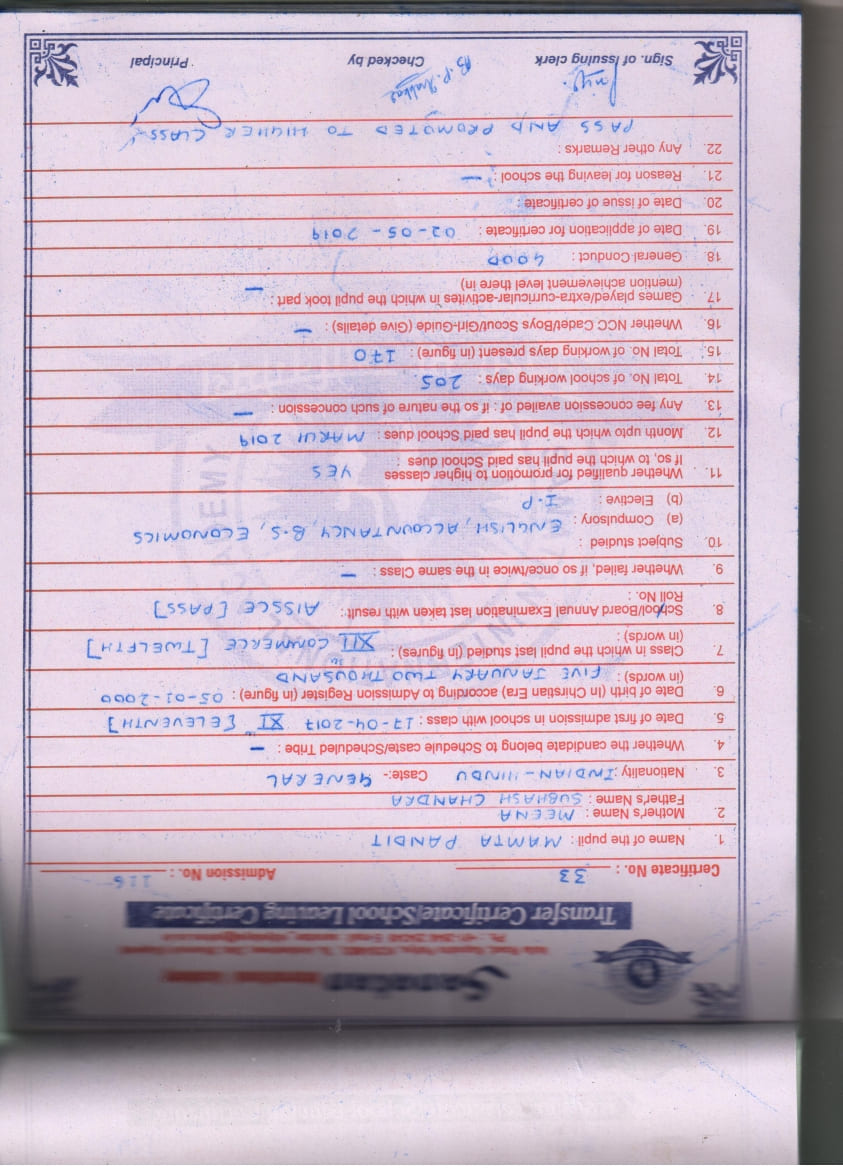 Sanatan
Transfer Certificate/School Leaving Certificate
Certificate No. : 33 Admission No. : 116
1. Name of the pupil : MAMTA PANDIT
2. Mother's Name : MEENA
Father's Name : SUBHASH CHANDRA
3. Nationality : INDIAN-HINDU Caste:- GENERAL
4. Whether the candidate belong to Schedule caste/Scheduled Tribe : —
5. Date of first admission in school with class : 17-04-2017 XI th [ELEVENTH]
6. Date of birth (In Christian Era) according to Admission Register (in figure) : 05-01-2000
(in words) : FIVE JANUARY TWO THOUSAND
7. Class in which the pupil last studied (in figures) : XII th COMMERCE [TWELFTH]
(in words) :
8. School/Board Annual Examination last taken with result: AISSCE [PASS]
Roll No. :
9. Whether failed, if so once/twice in the same Class : —
10. Subject studied :
(a) Compulsory : ENGLISH, ACCOUNTANCY, B.S, ECONOMICS
(b) Elective : I.P
11. Whether qualified for promotion to higher classes YES
If so, to which the pupil has paid School dues :
12. Month upto which the pupil has paid School dues : MARCH 2019
13. Any fee concession availed of : if so the nature of such concession : —
14. Total No. of school working days : 205
15. Total No. of working days present (in figure) : 170
16. Whether NCC Cadet/Boys Scout/Girl-Guide (Give details) : —
17. Games played/extra-curricular-activites in which the pupil took part : —
(mention achievement level there in)
18. General Conduct : GOOD
19. Date of application for certificate : 02-05-2019
20. Date of issue of certificate :
21. Reason for leaving the school : —
22. Any other Remarks :
PASS AND PROMOTED TO HIGHER CLASS.
Sign. of Issuing clerk Checked by Principal